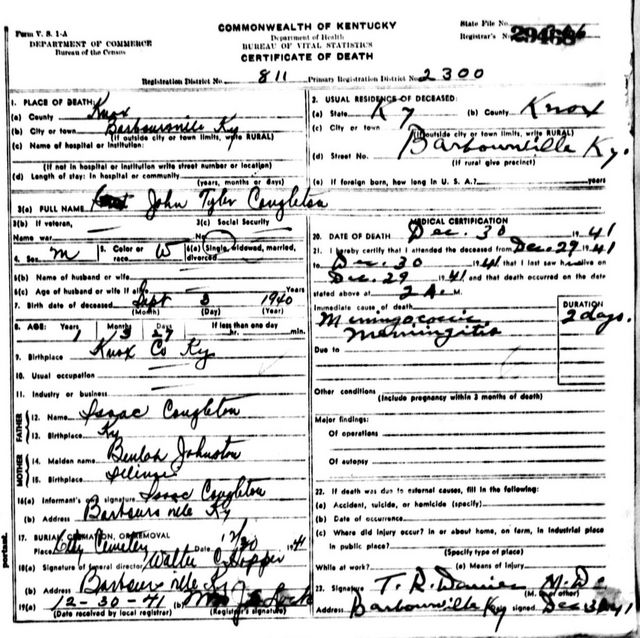 Form V. S. 1-A
DEPARTMENT OF COMMERCE
Bureau of the Census
COMMONWEALTH OF KENTUCKY
Department of Health
BUREAU OF VITAL STATISTICS
CERTIFICATE OF DEATH
State File No.
Registrar's No. 29468
Registration District No. 811 Primary Registration District No. 2300
1. PLACE OF DEATH:
(a) County Knox
(b) City or town Barboursville Ky
(If outside city or town limits, write RURAL)
(c) Name of hospital or institution:
(If not in hospital or institution write street number or location)
(d) Length of stay: In hospital or community
(years, months or days)
2. USUAL RESIDENCE OF DECEASED:
(a) State Ky (b) County Knox
(c) City or town Barbourville Ky.
(If outside city or town limits, write RURAL)
(d) Street No.
(If rural give precinct)
(e) If foreign born, how long in U. S. A.? years
3(a) FULL NAME John Tyler Congleton
3(b) If veteran, Name war
3(c) Social Security No.
4. Sex m 5. Color or race W 6(a) Single, widowed, married, divorced
6(b) Name of husband or wife
6(c) Age of husband or wife if alive Years
7. Birth date of deceased Sept 3 1940
(Month) (Day) (Year)
8. AGE: Years Months Days If less than one day
1 3 27 hr. min.
9. Birthplace Knox Co Ky
10. Usual occupation
11. Industry or business
FATHER
12. Name Isaac Congleton
13. Birthplace Ky
MOTHER
14. Maiden name Beulah Johnston
15. Birthplace Illinois
16(a) Informant's signature Isaac Congleton
(b) Address Barboursville Ky
17. BURIAL, CREMATION, OR REMOVAL
Place Cemetery Date 12/30 1941
18(a) Signature of funeral director Walter C Hopper
(b) Address Barboursville Ky
19(a) 12-30-41 (b)
(Date received by local registrar) (Registrar's signature)
MEDICAL CERTIFICATION
20. DATE OF DEATH Dec. 30 1941
21. I hereby certify that I attended the deceased from Dec. 29 1941
to Dec. 30 1941 that I last saw h alive on
Dec. 29 1941 and that death occurred on the date
stated above at 2 A. M.
Immediate cause of death
Meningococcic
Meningitis
DURATION
2 days.
Due to
Other conditions
(Include pregnancy within 3 months of death)
Major findings:
Of operations
Of autopsy
22. If death was due to external causes, fill in the following:
(a) Accident, suicide, or homicide (specify)
(b) Date of occurrence
(c) Where did injury occur? In or about home, on farm, in industrial place
in public place?
(Specify type of place)
While at work? (e) Means of Injury
23. Signature T. R. Davies M. D.
(M. D. or other)
Address Barbourville Ky signed Dec 30 1941
portant.